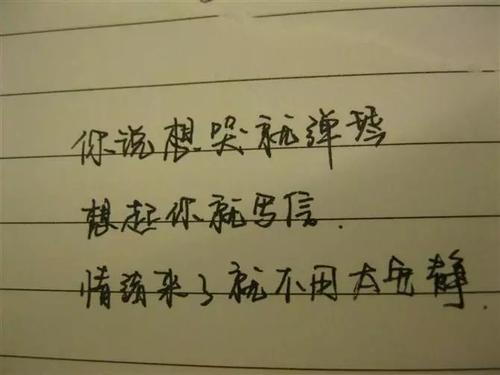 你说想哭就弹琴
想起你就写信.
情绪来了就不用太安静.